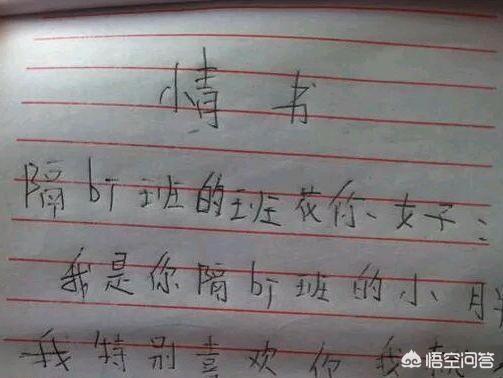 情书
隔bi班的班花你、女子:
我是你隔bi班的小
我特别喜欢你我
悟空问答